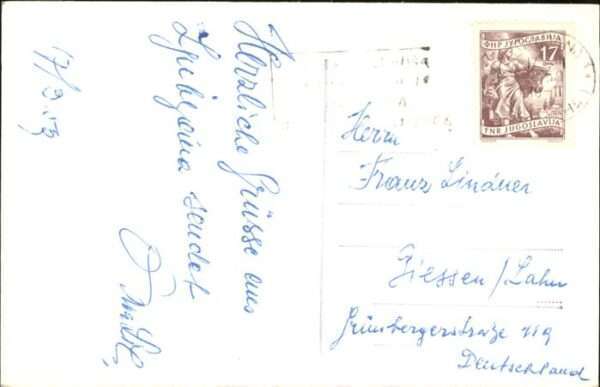 17/9.53
Herzliche Grüsse aus
Ljubljana sendet
ФНР ЈУГОСЛАВИЈА
17
FNR JUGOSLAVIJA
Herrn
Franz Lindner
Giessen/Lahn
Grünbergerstraße 119
Deutschland